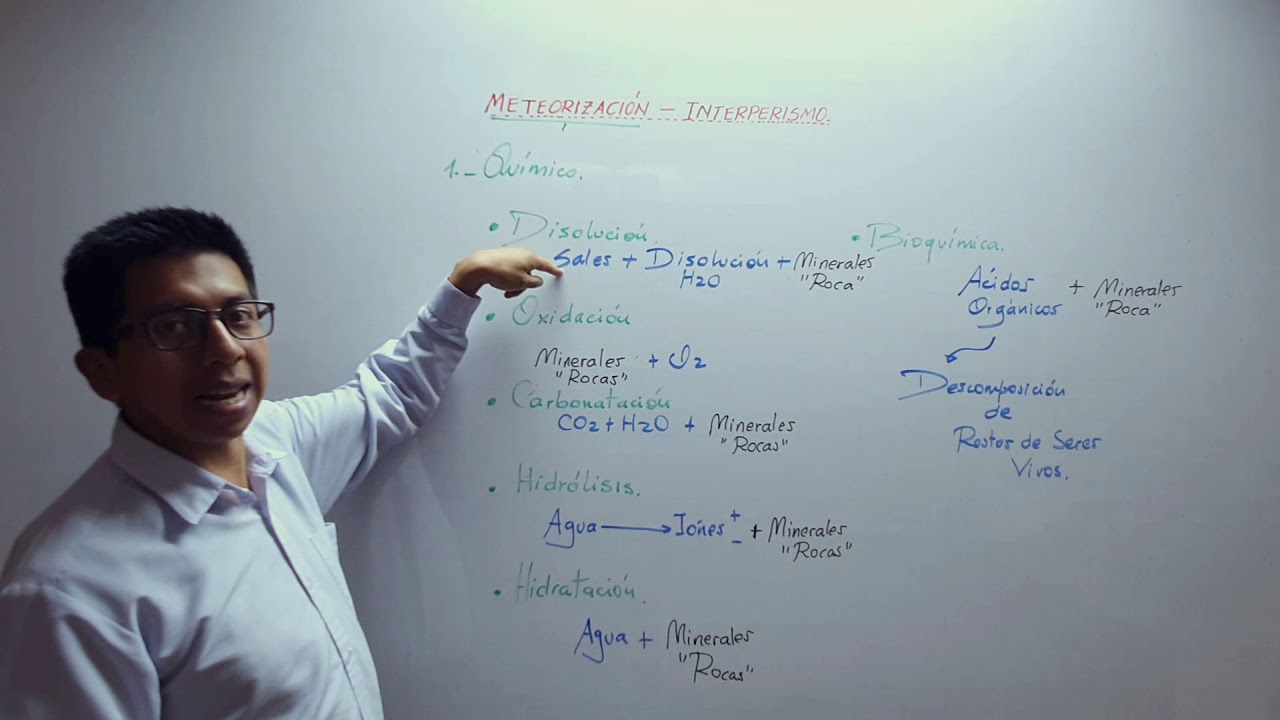 METEORIZACIÓN – INTERPERISMO.
1.- Químico.
• Disolución.
Sales + Disolución + Minerales
H2O "Roca"
• Oxidación
Minerales + O2
"Rocas"
• Carbonatación
CO2 + H2O + Minerales
"Rocas"
• Hidrólisis.
Agua → Iónes + - + Minerales
"Rocas"
• Hidratación.
Agua + Minerales
"Rocas"
• Bioquímica.
Ácidos + Minerales
Orgánicos "Roca"
Descomposición
de
Restos de Seres
Vivos.